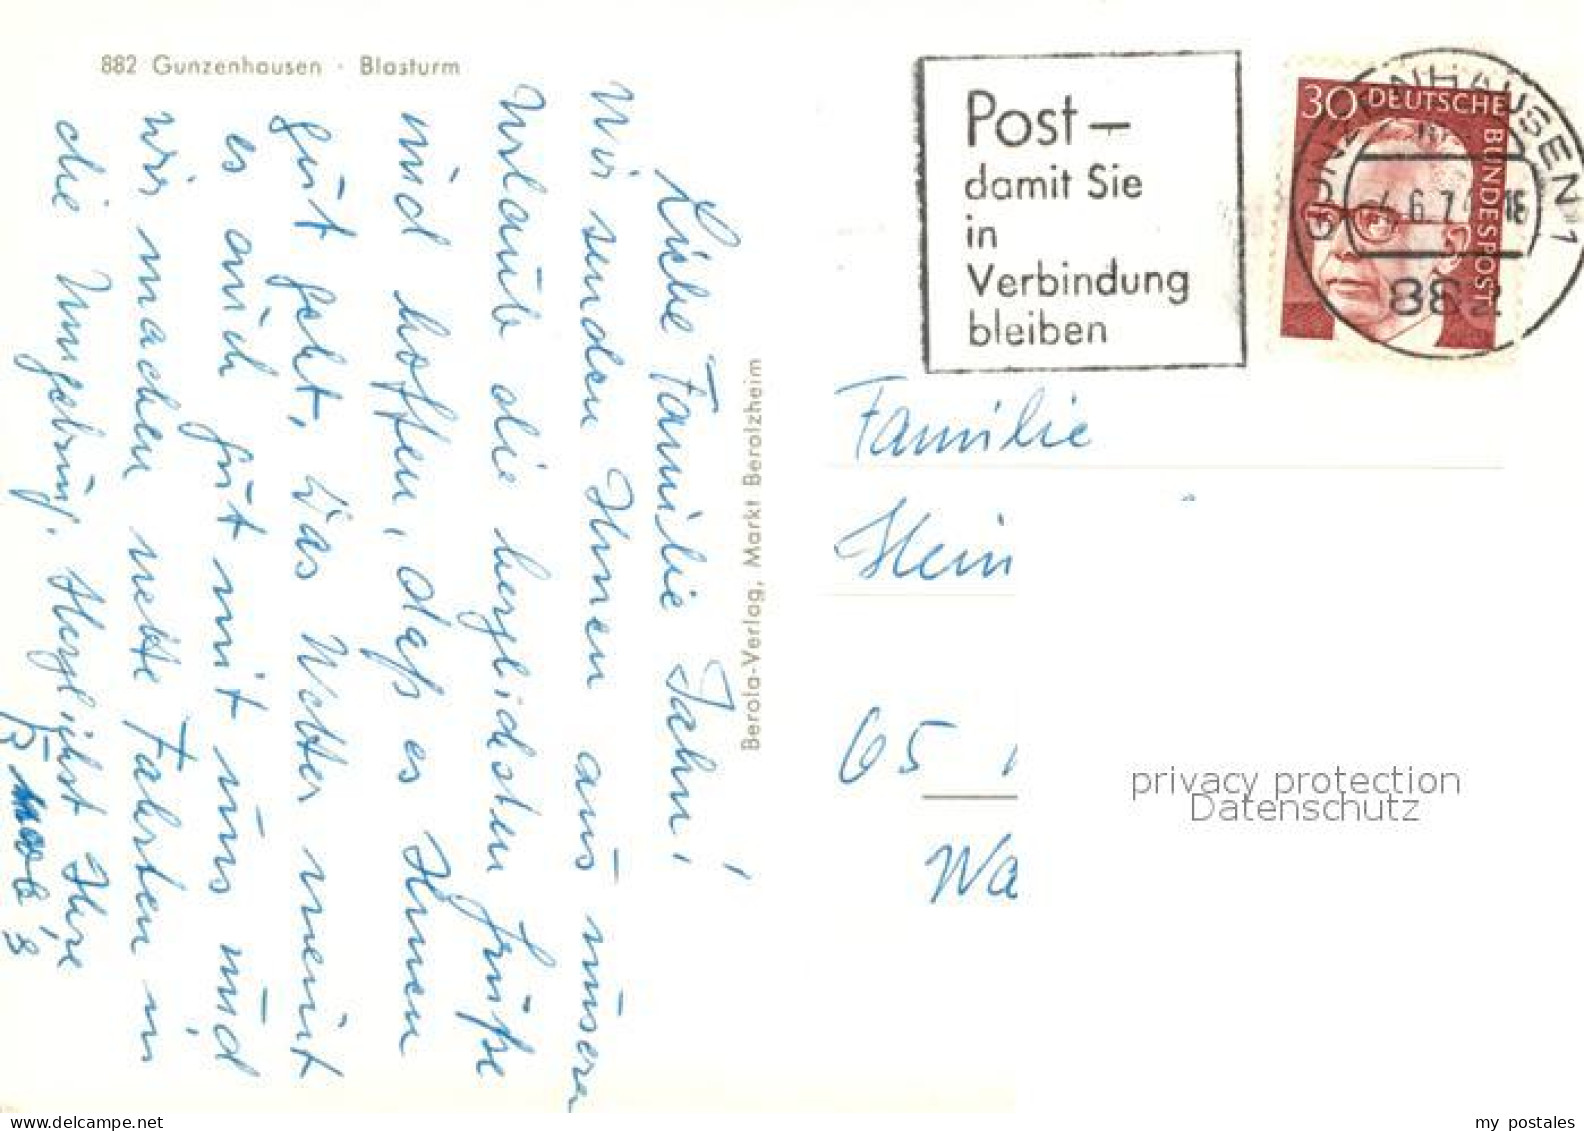 882 Gunzenhausen · Blasturm
Liebe Familie Jahn!
Wir senden Ihnen aus unserem
Urlaub die herzlichsten Grüße
und hoffen, daß es Ihnen
gut geht. Das Wetter meint
es auch gut mit uns und
wir machen nette Fahrten in
die Umgebung. Herzlichst Ihre
Berola-Verlag, Markt Berolzheim
Post –
damit Sie
in
Verbindung
bleiben
30 DEUTSCHE
BUNDESPOST
GUNZENHAUSEN 1
882
Familie
Hein
65
Wa
privacy protection
Datenschutz
www.delcampe.net
my postales